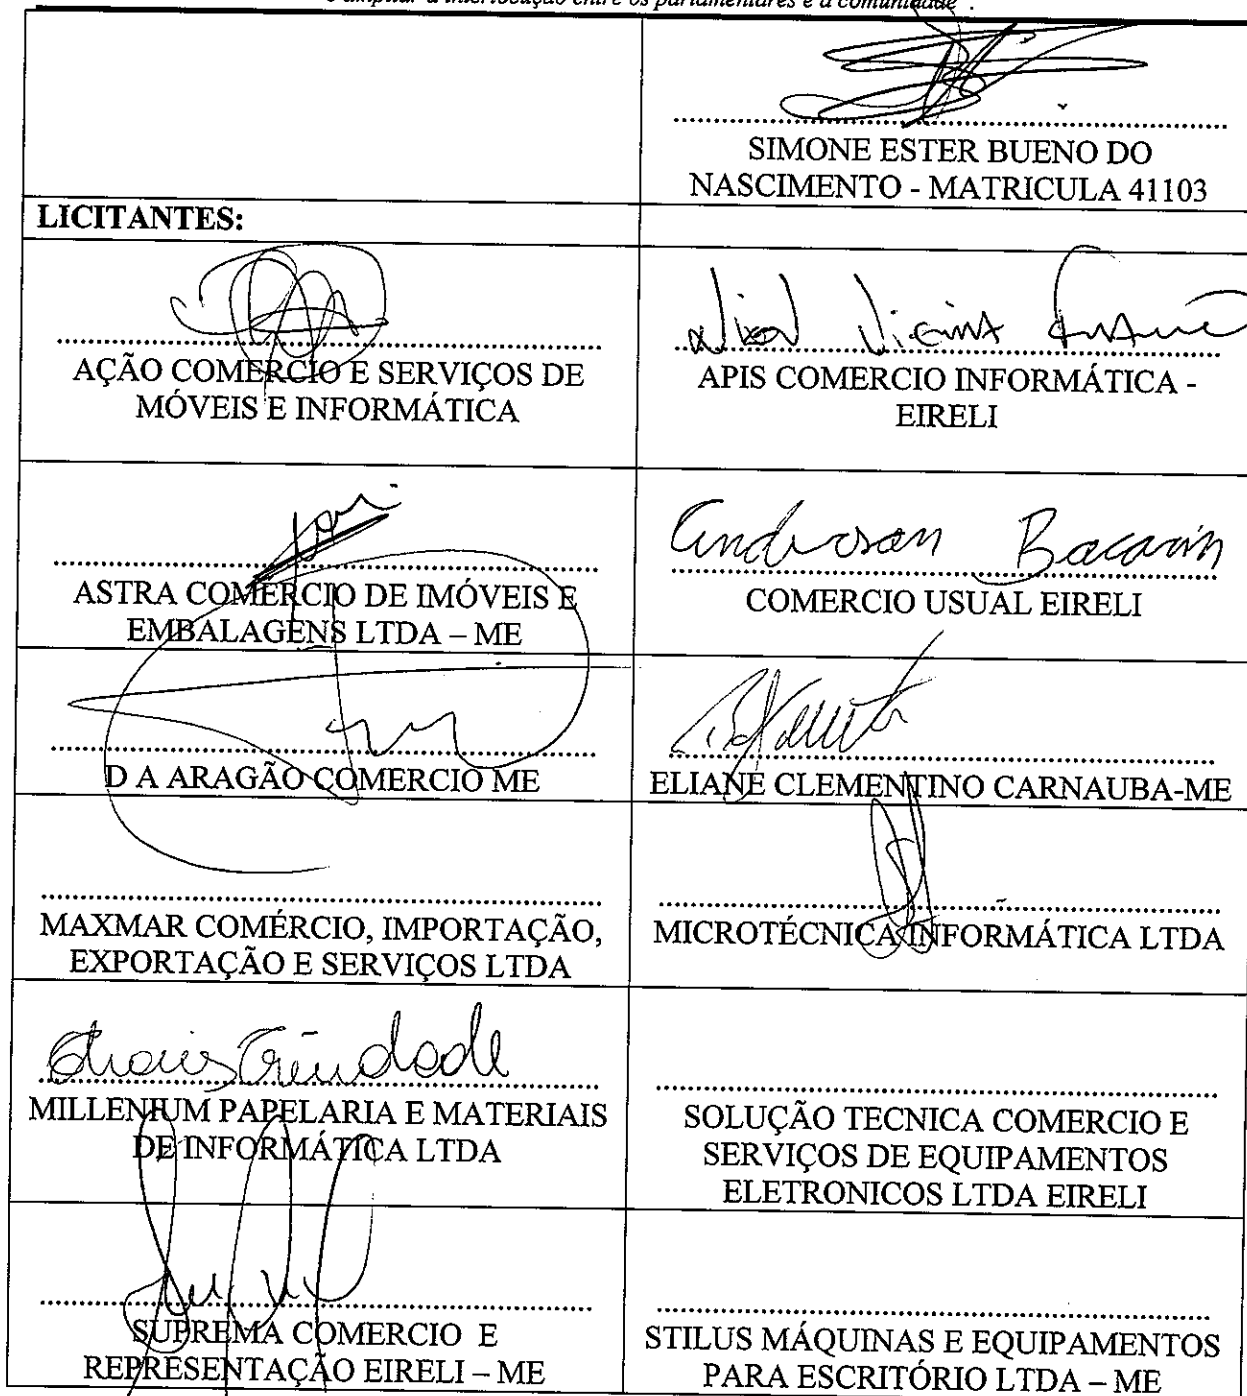 e ampliar a interlocução entre os parlamentares e a comunidade".
SIMONE ESTER BUENO DO
NASCIMENTO - MATRICULA 41103
LICITANTES:
AÇÃO COMERCIO E SERVIÇOS DE
MÓVEIS E INFORMÁTICA
APIS COMERCIO INFORMÁTICA -
EIRELI
ASTRA COMERCIO DE IMÓVEIS E
EMBALAGENS LTDA – ME
Anderson Bacarin
COMERCIO USUAL EIRELI
D A ARAGÃO COMERCIO ME
ELIANE CLEMENTINO CARNAUBA-ME
MAXMAR COMÉRCIO, IMPORTAÇÃO,
EXPORTAÇÃO E SERVIÇOS LTDA
MICROTÉCNICA INFORMÁTICA LTDA
Trindade
MILLENIUM PAPELARIA E MATERIAIS
DE INFORMÁTICA LTDA
SOLUÇÃO TECNICA COMERCIO E
SERVIÇOS DE EQUIPAMENTOS
ELETRONICOS LTDA EIRELI
SUPREMA COMERCIO E
REPRESENTAÇÃO EIRELI – ME
STILUS MÁQUINAS E EQUIPAMENTOS
PARA ESCRITÓRIO LTDA – ME